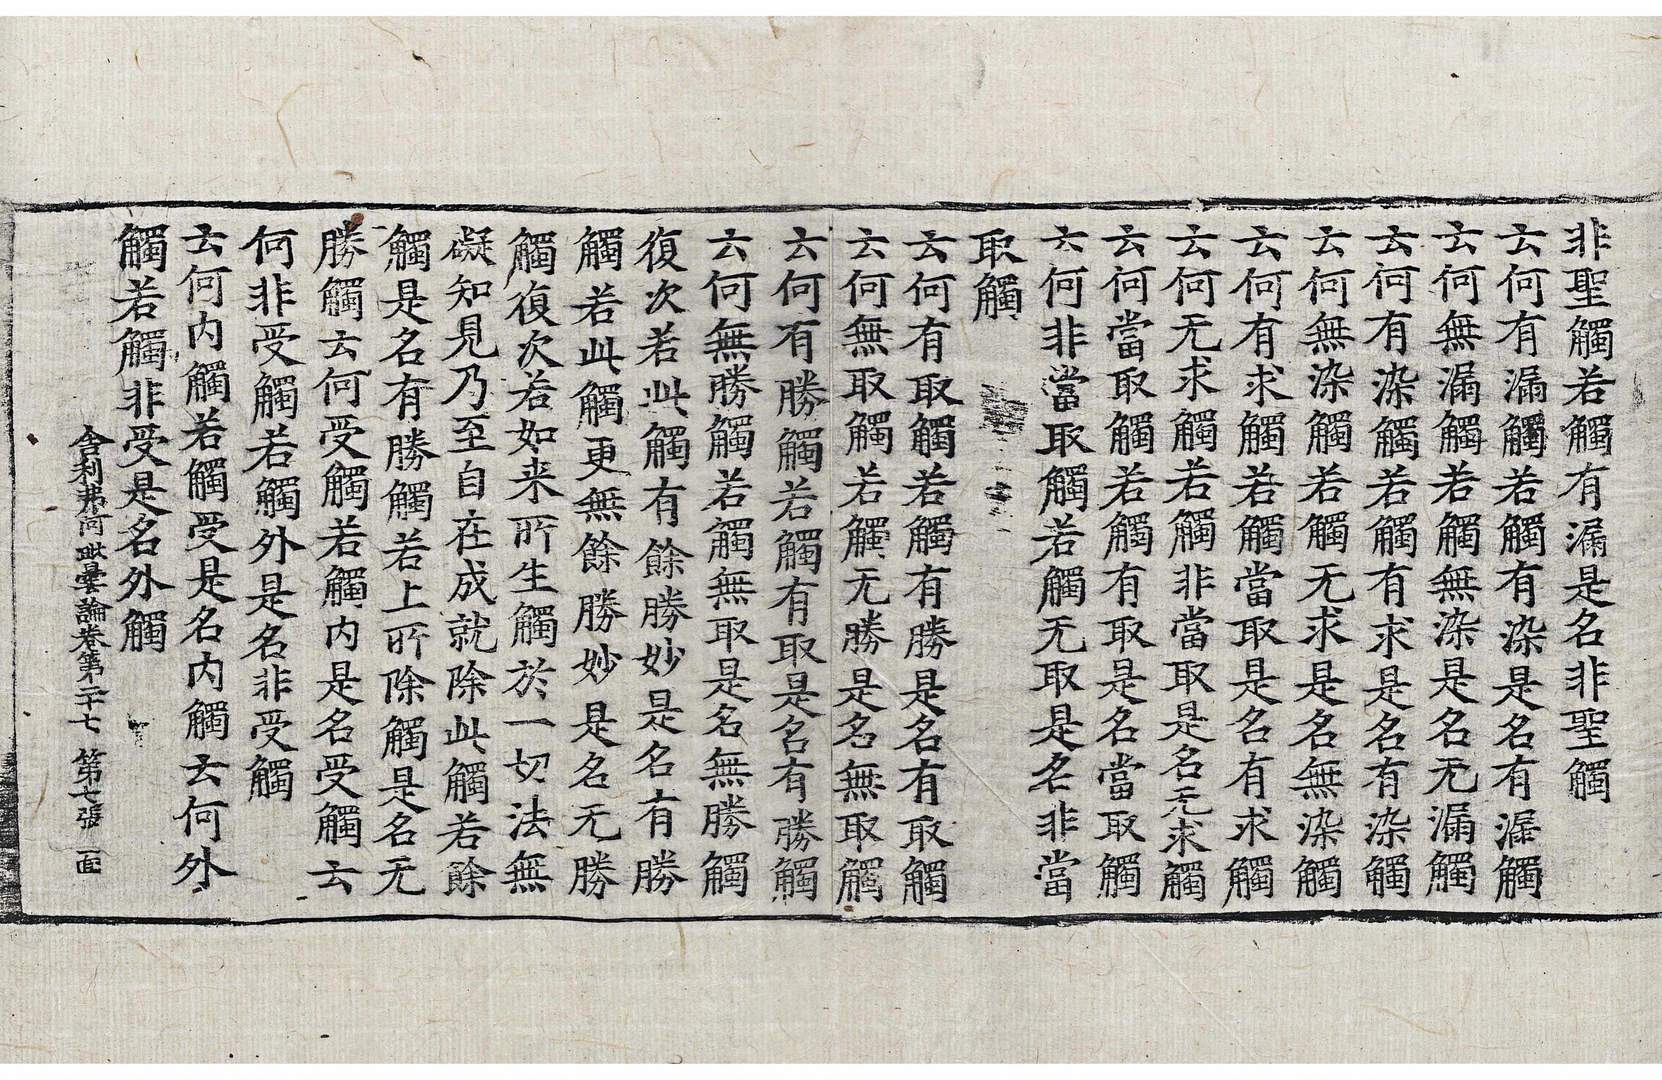 非聖觸若觸有漏是名非聖觸
云何有漏觸若觸有染是名有漏觸
云何無漏觸若觸無染是名无漏觸
云何有染觸若觸有求是名有染觸
云何無染觸若觸无求是名無染觸
云何有求觸若觸當取是名有求觸
云何无求觸若觸非當取是名无求觸
云何當取觸若觸有取是名當取觸
云何非當取觸若觸无取是名非當
取觸
云何有取觸若觸有勝是名有取觸
云何無取觸若觸无勝是名無取觸
云何有勝觸若觸有取是名有勝觸
云何無勝觸若觸無取是名無勝觸
復次若此觸有餘勝妙是名有勝
觸若此觸更無餘勝妙是名无勝
觸復次若如来所生觸於一切法無
礙知見乃至自在成就除此觸若餘
觸是名有勝觸若上所除觸是名无
勝觸云何受觸若觸内是名受觸云
何非受觸若觸外是名非受觸
云何内觸若觸受是名内觸云何外
觸若觸非受是名外觸
舍利弗阿毗曇論卷第二十七 第七張 面